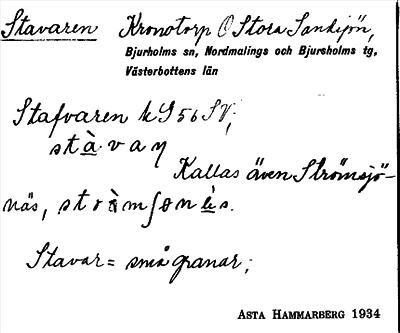 Stavaren Kronotorp O Stora Sandsjön,
Bjurholms sn, Nordmalings och Bjurholms tg,
Västerbottens län
Stafvaren k G 56 SV;
stàvaŋ
Kallas även Strömsjö-
näs, strö̀mʃənès.
Stavar = små granar;
ASTA HAMMARBERG 1934